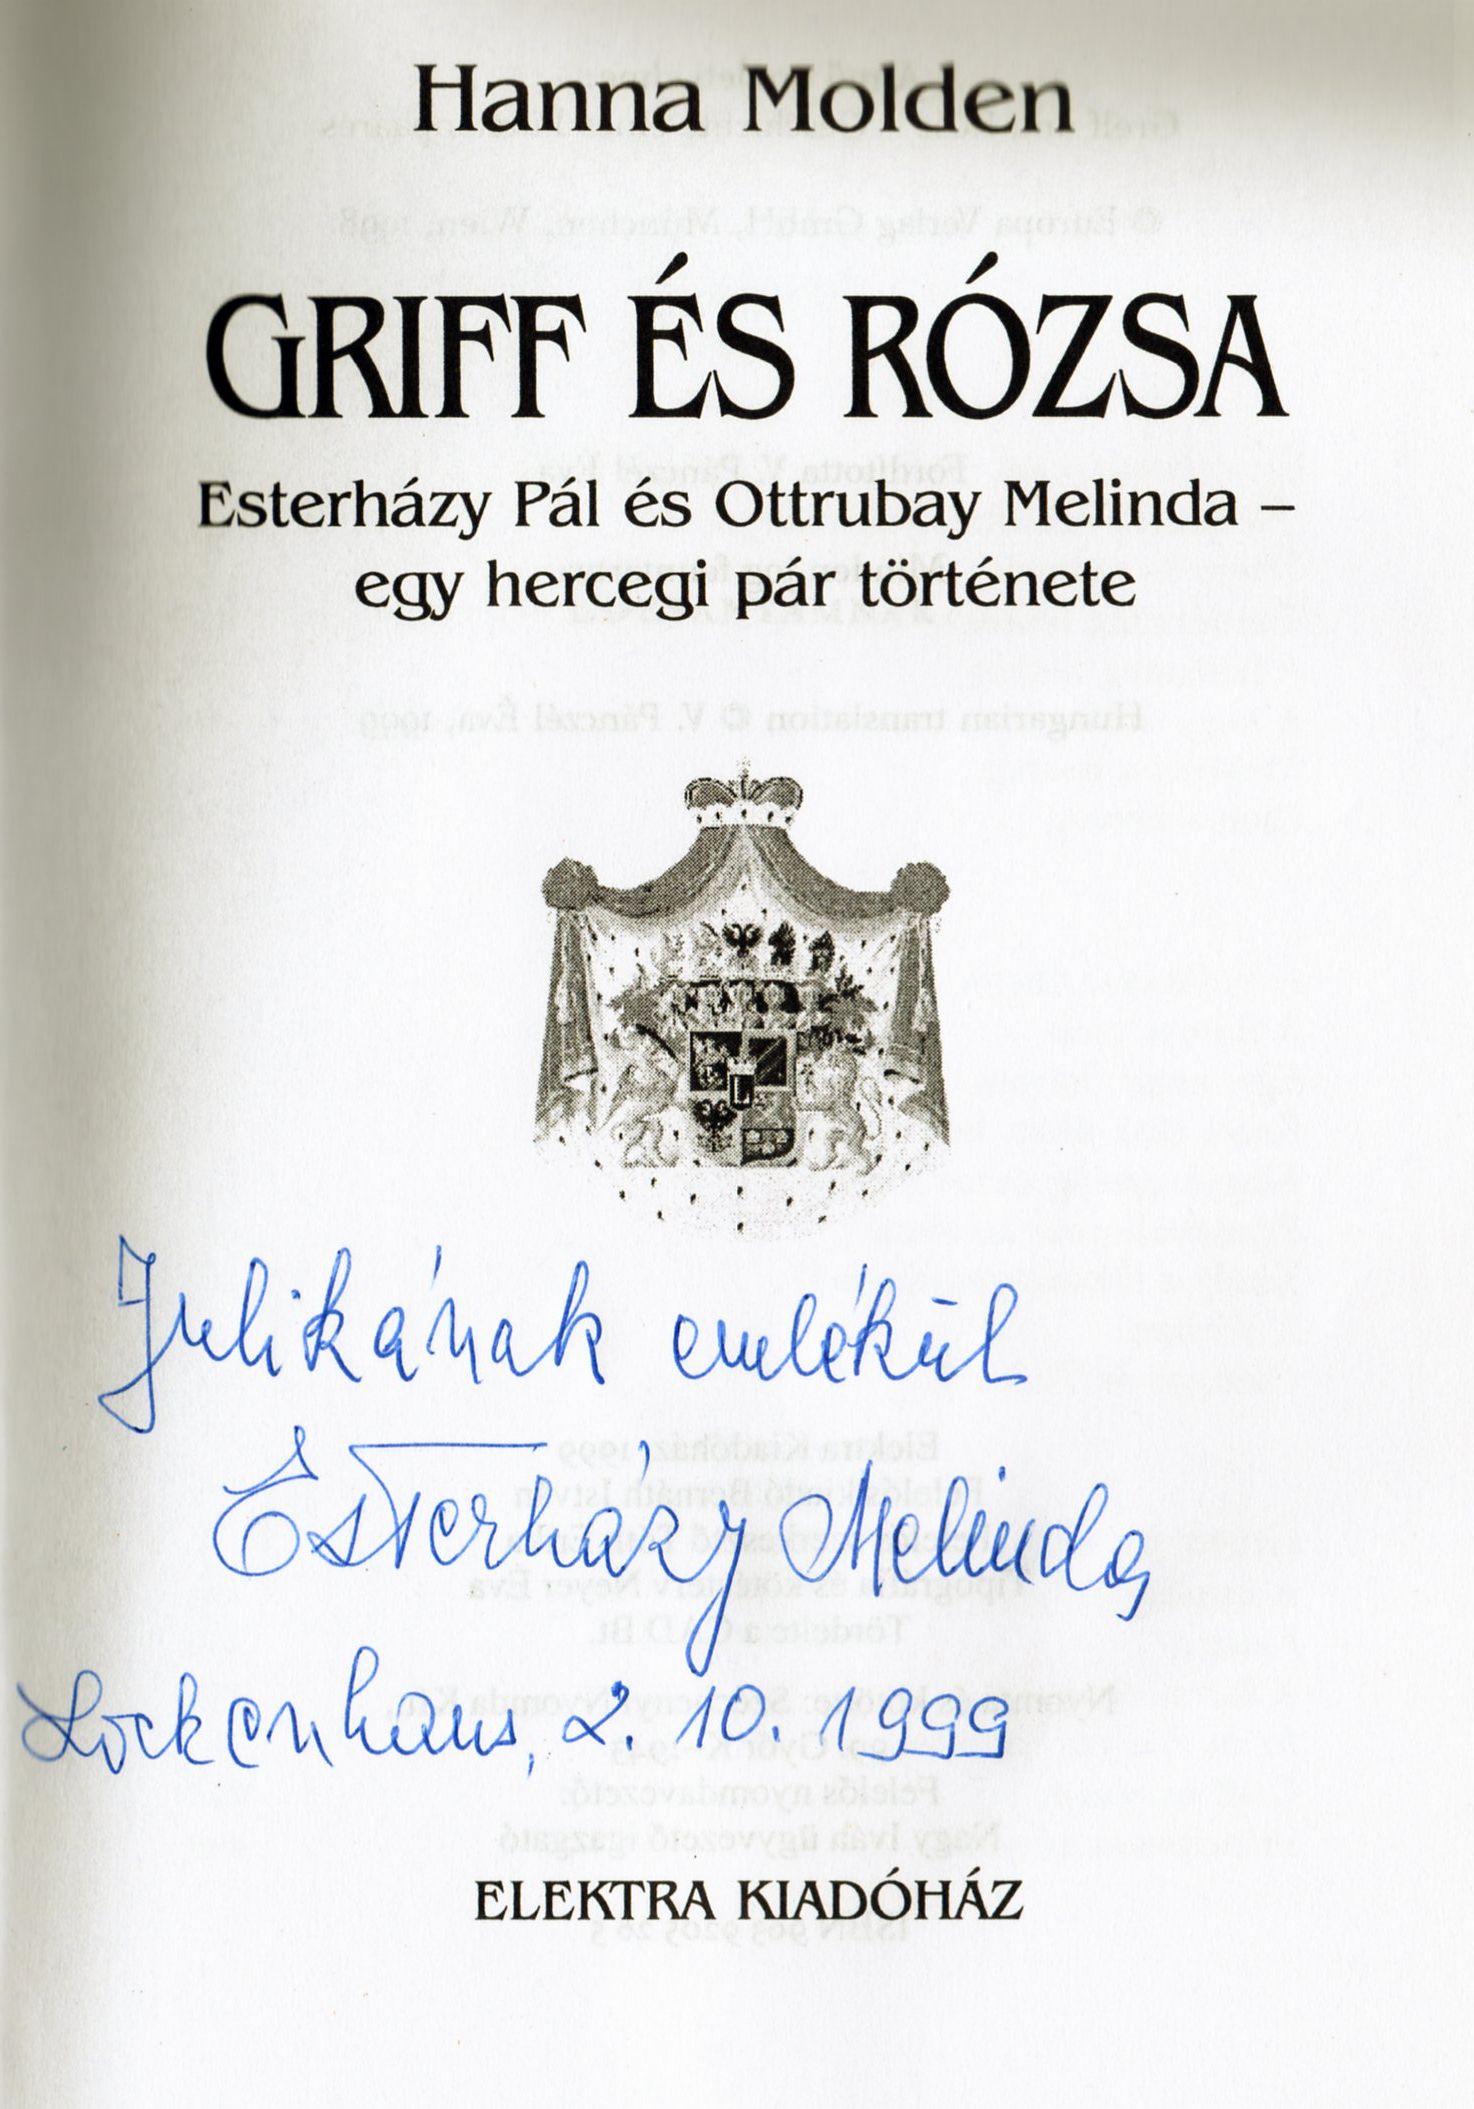 Hanna Molden
GRIFF ÉS RÓZSA
Esterházy Pál és Ottrubay Melinda –
egy hercegi pár története
Julikának emlékül
Esterházy Melinda
Lockenhaus, 2. 10. 1999
ELEKTRA KIADÓHÁZ